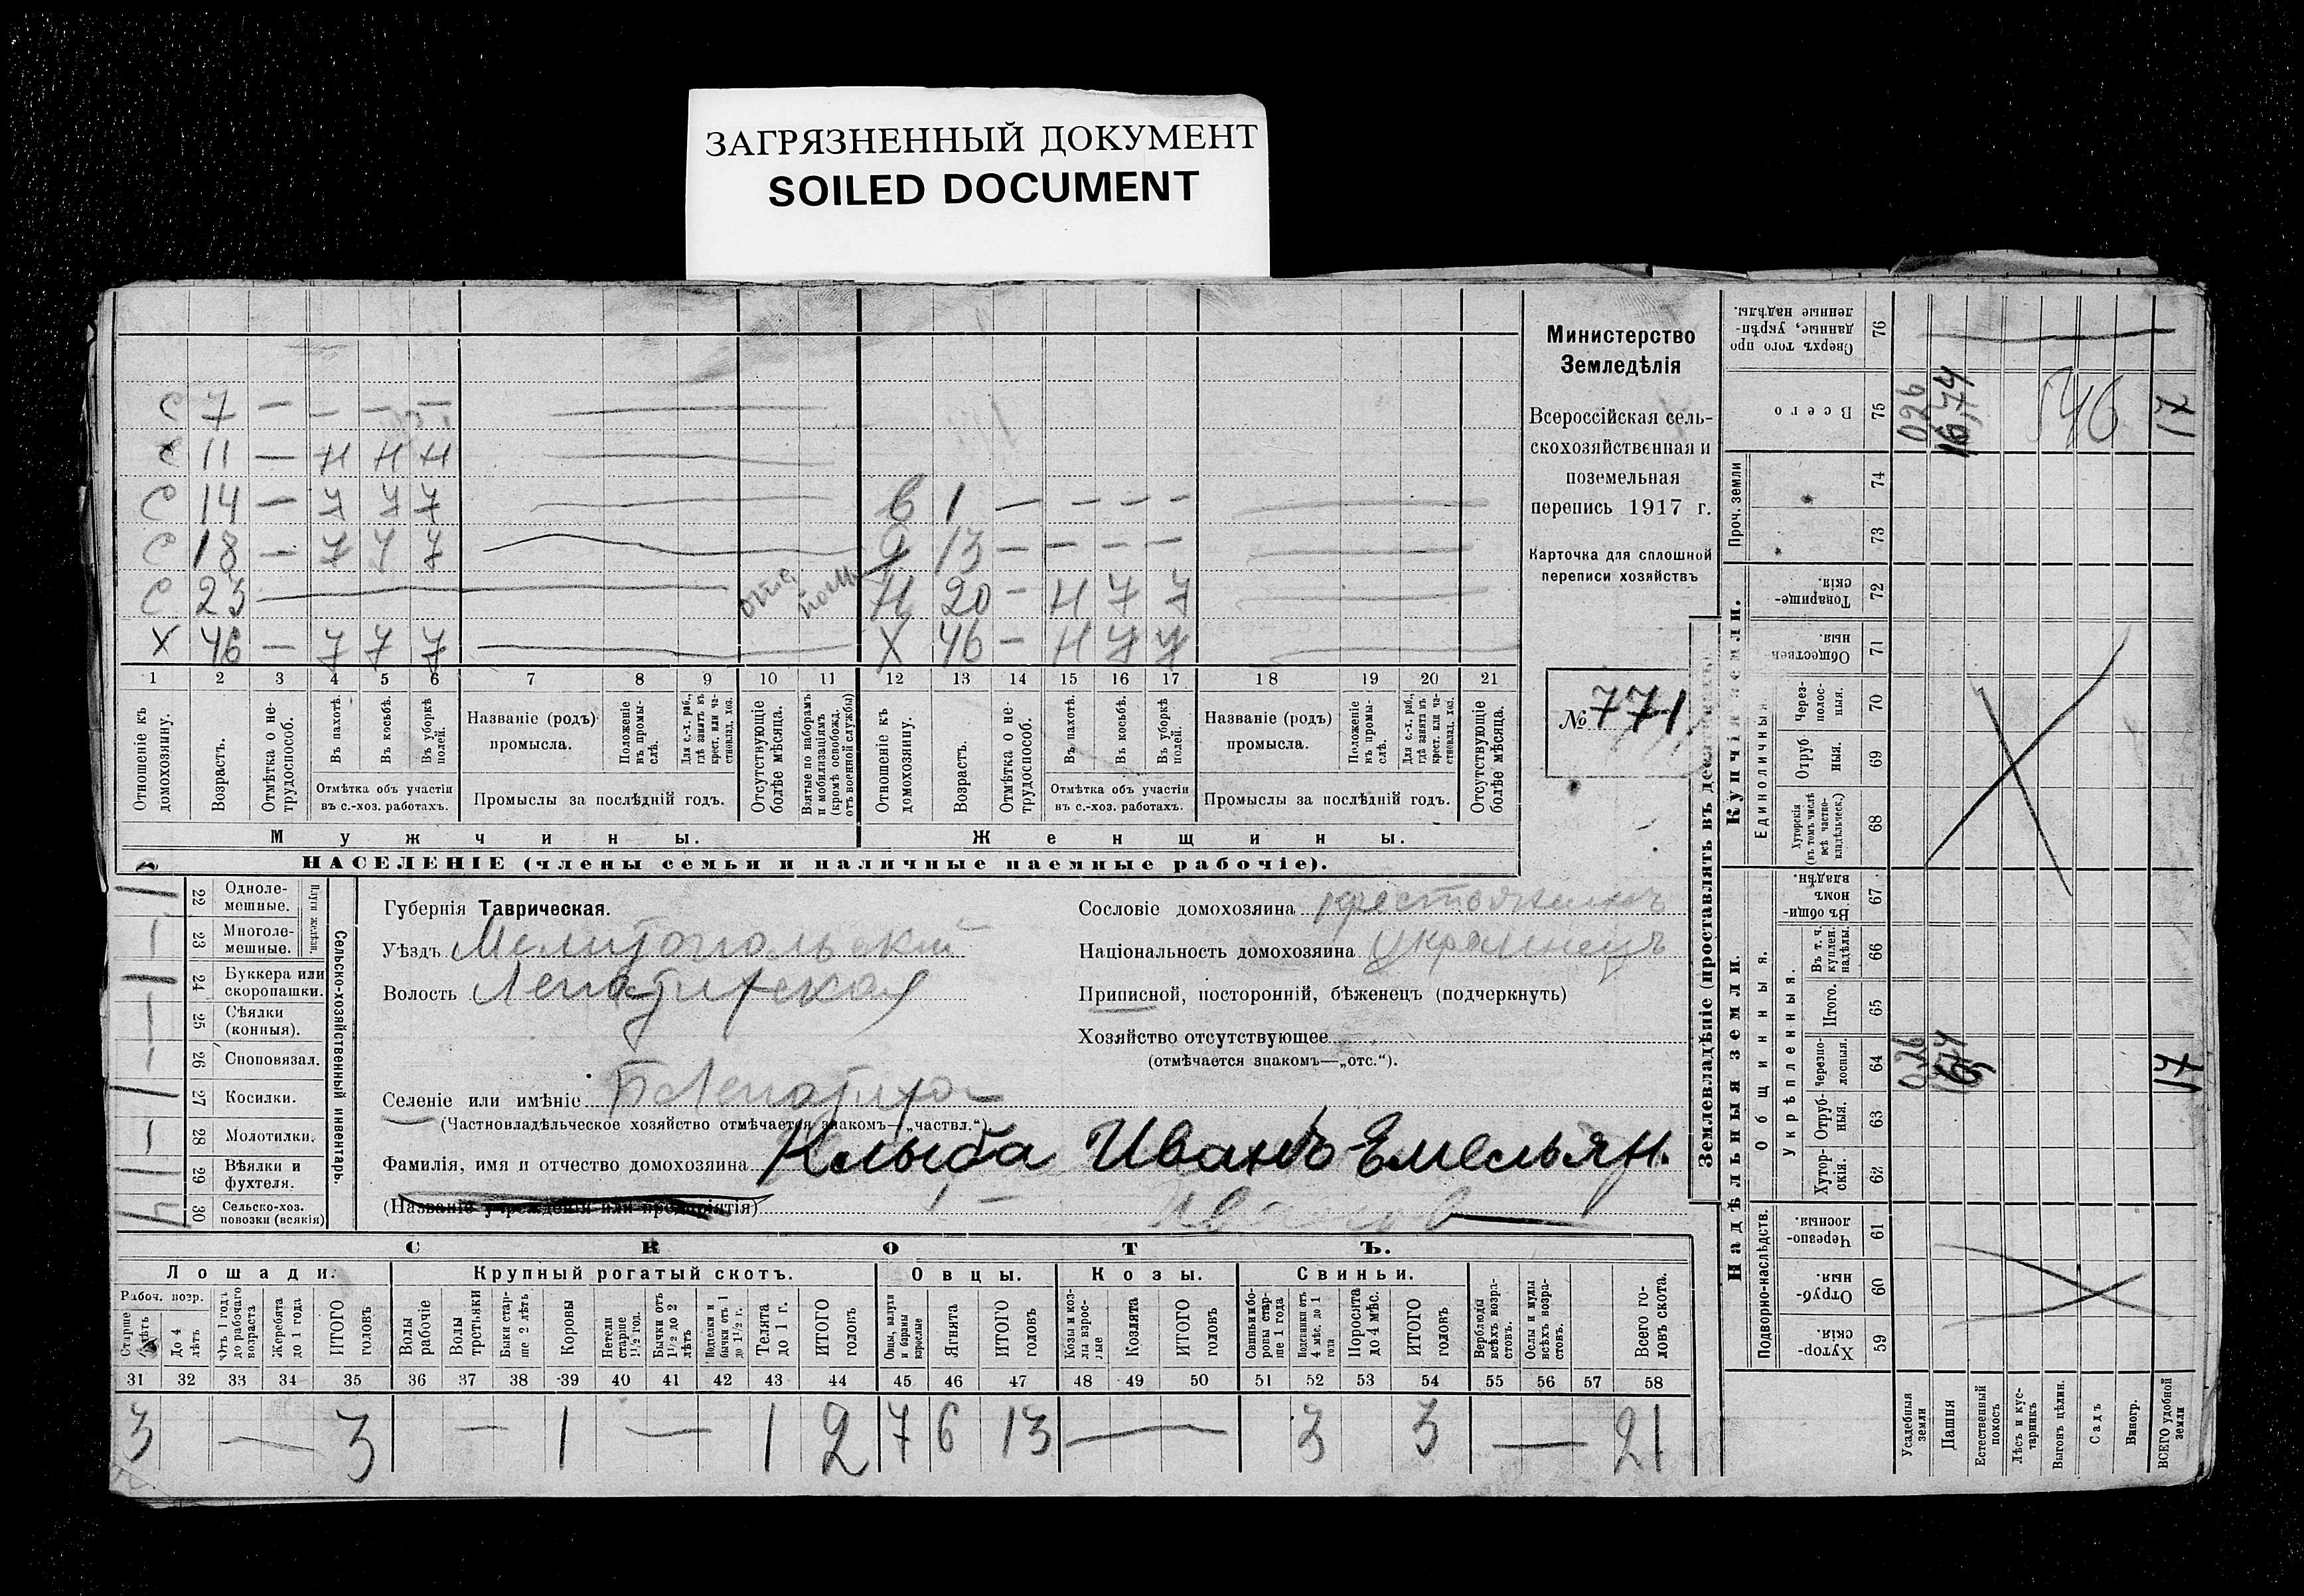 ЗАГРЯЗНЕННЫЙ ДОКУМЕНТ
SOILED DOCUMENT
С 7 — — — —
11 — Н Н Н
С 14 — 7 7 7
В 1 — — — —
С 18 — 7 7 7
Д 13 — — — —
С 23
Н 20 — Н 7 7
Х 46 — 7 7 7
Х 46 — Н 7 7
1 2 3 4 5 6 7 8 9 10 11 12 13 14 15 16 17 18 19 20 21
Отношеніе къ домохозяину.
Возрастъ.
Отмѣтка о не-трудоспособ.
Въ пахотѣ.
Въ косьбѣ.
Въ уборкѣ полей.
Отмѣтка объ участіи
въ с.-хоз. работахъ.
Названіе (родъ)
промысла.
Положеніе въ промы-слѣ.
Для с.-х. раб., гдѣ занятъ въ крест. или ча-стновлад. хоз.
Промыслы за послѣдній годъ.
Отсутствующіе болѣе мѣсяца.
Взятые по наборамъ и мобилизаціямъ (кромѣ освобожд. отъ военной службы)
Отношеніе къ домохозяину.
Возрастъ.
Отмѣтка о не-трудоспособ.
Въ пахотѣ.
Въ косьбѣ.
Въ уборкѣ полей.
Отмѣтка объ участіи
въ с.-хоз. работахъ.
Названіе (родъ)
промысла.
Положеніе въ промы-слѣ.
Для с.-х. раб., гдѣ занята въ крест. или ча-стновлад. хоз.
Промыслы за послѣдній годъ.
Отсутствующіе болѣе мѣсяца.
Мужчины.
Женщины.
НАСЕЛЕНІЕ (члены семьи и наличные наемные рабочіе).
Министерство
Земледѣлія
Всероссійская сель-
скохозяйственная и
поземельная
перепись 1917 г.
Карточка для сплошной
переписи хозяйствъ
№ 771
22 Одноле-мешные.
23 Многоле-мешные.
Плуги желѣзн.
24 Буккера или скоропашки.
25 Сѣялки (конныя).
26 Сноповязал.
27 Косилки.
28 Молотилки.
29 Вѣялки и фухтеля.
30 Сельско-хоз. повозки (всякія)
Сельско-хозяйственный инвентарь.
Губернія Таврическая.
Уѣздъ Мелитопольский
Волость Лепатихская
Селеніе или имѣніе Б Лепатиха
(Частновладѣльческое хозяйство отмѣчается знакомъ—„частвл.“)
Фамилія, имя и отчество домохозяина Клыба Иванъ Емельян.
(Названіе учрежденія или предпріятія)
Сословіе домохозяина крестьянинъ
Національность домохозяина украинецъ
Приписной, посторонній, бѣженецъ (подчеркнуть)
Хозяйство отсутствующее
(отмѣчается знакомъ—„отс.“).
СКОТЪ.
Лошади.
Крупный рогатый скотъ.
Овцы.
Козы.
Свиньи.
Рабоч. возр.
Старше лѣтъ
До 4 лѣтъ
Отъ 1 года до рабочаго возраста
Жеребята до 1 года
ИТОГО головъ
Волы рабочіе
Волы третьяки
Быки стар-ше 2 лѣтъ
Коровы
Нетели старше 1½ год.
Бычки отъ 1½ до 2 лѣтъ
Подтелки и бычки отъ 1 до 1½ г.
Телята до 1 г.
ИТОГО головъ
Овцы, валухи и бараны взрослые
Ягнята
ИТОГО головъ
Козы и коз-лы взрос-лые
Козлята
ИТОГО головъ
Свиньи и бо-ровы стар-ше 1 года
Подсвинки отъ 4 мѣс. до 1 года
Поросята до 4 мѣс.
ИТОГО головъ
Верблюды всѣхъ возра-стовъ.
Ослы и мулы всѣхъ возра-стовъ.
Всего го-ловъ скота.
31 32 33 34 35 36 37 38 39 40 41 42 43 44 45 46 47 48 49 50 51 52 53 54 55 56 57 58
3 — 3 — 1 — 1 2 7 6 13 — 3 3 — 21
Землевладѣніе (проставлять въ
Купчія земли.
Надѣльныя земли.
Сверхъ того про-данные, укрѣп-ленные надѣлы. 76
Всего 75
Проч. земли 74 73
Товарище-скія. 72
Обществен-ныя. 71
Единоличныя
Через-полос-ныя. 70
Отруб-ныя. 69
Хуторскія (въ томъ числѣ всѣ частно-владѣльческ.) 68
Въ общи-номъ владѣн. 67
Общинныя.
Укрѣпленныя.
Въ т. ч. куплен. надѣлы. 66
Итого. 65
Черезпо-лосныя. 64
Отруб-ныя. 63
Хутор-скія. 62
Подворно-наслѣдств.
Черезпо-лосныя. 61
Отруб-ныя. 60
Хутор-скія. 59
Усадебныя земли
Пашня
Естественный покосъ
Лѣсъ и кус-тарникъ
Выгонъ цѣлин.
Садъ
Виногр.
ВСЕГО удобной земли
026
16,74
546
17
026
17